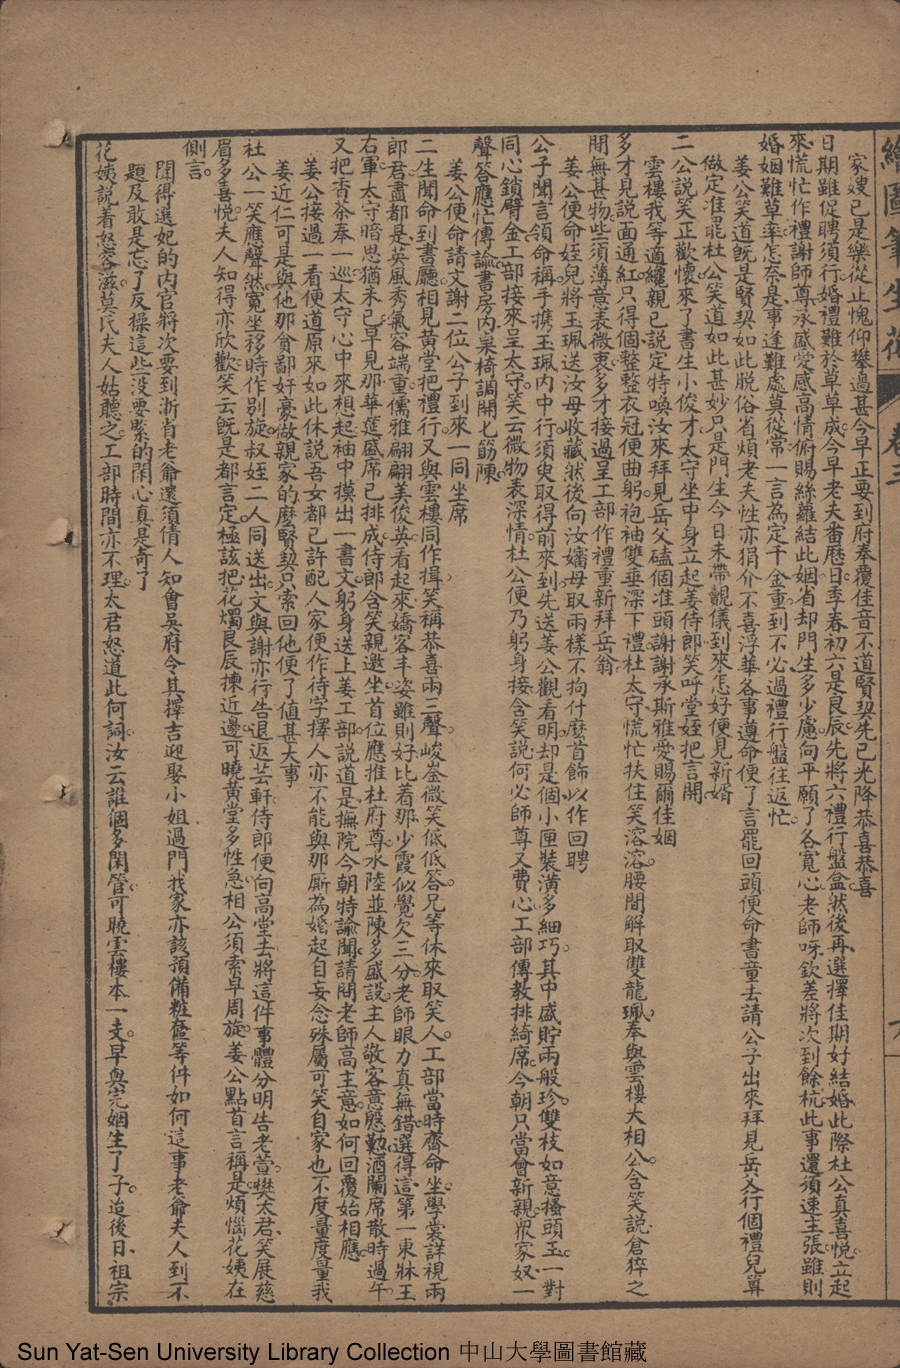 繪圖筆生花 卷三
家嫂已是樂從止愧仰攀過甚今早正要到府奉覆佳音不道賢契先已光降恭喜恭喜
日期雖促聘須行婚禮難於草草成今早老夫番曆日季春初六是良辰先將六禮行盤盒然後再選擇佳期好結婚此際杜公真喜悅立起
來慌忙作禮謝師尊承感愛感高情俯賜絲蘿結此姻省却門生多少慮向平願了各寬心老師呀欽差將次到餘杭此事還須速主張雖則
婚姻難草率怎奈是事逢難處莫從常一言為定千金重到不必過禮行盤往返忙
姜公笑道既是賢契如此脫俗省煩老夫性亦狷介不喜浮華各事遵命便了言罷回頭便命書童去請公子出來拜見岳父行個禮兒算
做定准罷杜公笑道如此甚妙只是門生今日未帶覿儀到來怎好便見新婿
二公說笑正歡懷來了書生小俊才太守坐中身立起姜侍郎笑呼堂姪把言開
雲樓我等適纔親已說定特喚汝來拜見岳父磕個准頭謝謝承斯雅愛賜爾佳姻
多才見說面通紅只得個整整衣冠便曲躬袍袖雙垂深下禮杜太守慌忙扶住笑溶溶腰間解取雙龍珮奉與雲樓大相公含笑說倉猝之
間無甚物些須薄意表微衷多才接過呈工部作禮重新拜岳翁
姜公便命姪兒將玉珮送汝母收藏然後向汝嬸母取兩樣不拘什麼首飾以作回聘
公子聞言領命稱手攜玉珮內中行須臾取得前來到先送姜公觀看明却是個小匣裝潢多細巧其中盛貯兩般珍雙枝如意搔頭玉一對
同心鎖臂金工部接來呈太守笑云微物表深情杜公便乃躬身接含笑說何必師尊又費心工部傳教排綺席今朝只當會新親衆家奴一
聲答應忙傳諭書房內杲椅調開匕筯陳
姜公便命請文謝二位公子到來一同坐席
二生聞命到書廳相見黃堂把禮行又與雲樓同作揖笑稱恭喜兩三聲峻峯微笑低低答兄等休來取笑人工部當時齊命坐學裳詳視兩
郎君盡都是英風秀氣容端重儒雅翩翩美俊英看起來嬌客丰姿雖則好比着那少霞似覺欠三分老師眼力真無錯選得這第一東牀王
右軍太守暗思猶未已早見那華筵盛席已排成侍郎含笑親邀坐首位應推杜府尊水陸並陳多盛設主人敬客意慇懃酒闌席散時過午
又把香茶奉一巡太守心中來想起袖中摸出一書文躬身送上姜工部說道是撫院今朝特諭聞請問老師高主意如何回覆始相應
姜公接過一看便道原來如此休說吾女都已許配人家便作待字擇人亦不能與那厮為婚起自妄念殊屬可笑自家也不度量度量我
姜近仁可是與他那貪鄙奸豪做親家的麼賢契只索回他便了值甚大事
杜公一笑應聲然寬坐移時作別旋叔姪二人同送出文與謝亦行告退返芸軒侍郎便向高堂去將這件事體分明告老萱樊太君笑展慈
眉多喜悅夫人知得亦欣歡笑云既是都言定極該把花燭良辰揀近邊可曉黃堂多性急相公須索早周旋姜公點首言稱是煩惱花姨在
側言
聞得選妃的內官將次要到浙省老爺還須倩人知會吳府令其擇吉迎娶小姐過門我家亦該預備粧奩等件如何這事老爺夫人到不
題及敢是忘了反操這些沒要緊的閑心真是奇了
花姨說着怒容滋莫氏夫人姑聽之工部時間亦不理太君怒道此何詞汝云誰個多閑管可曉雲樓本一支早與完姻生了子迨後日祖宗